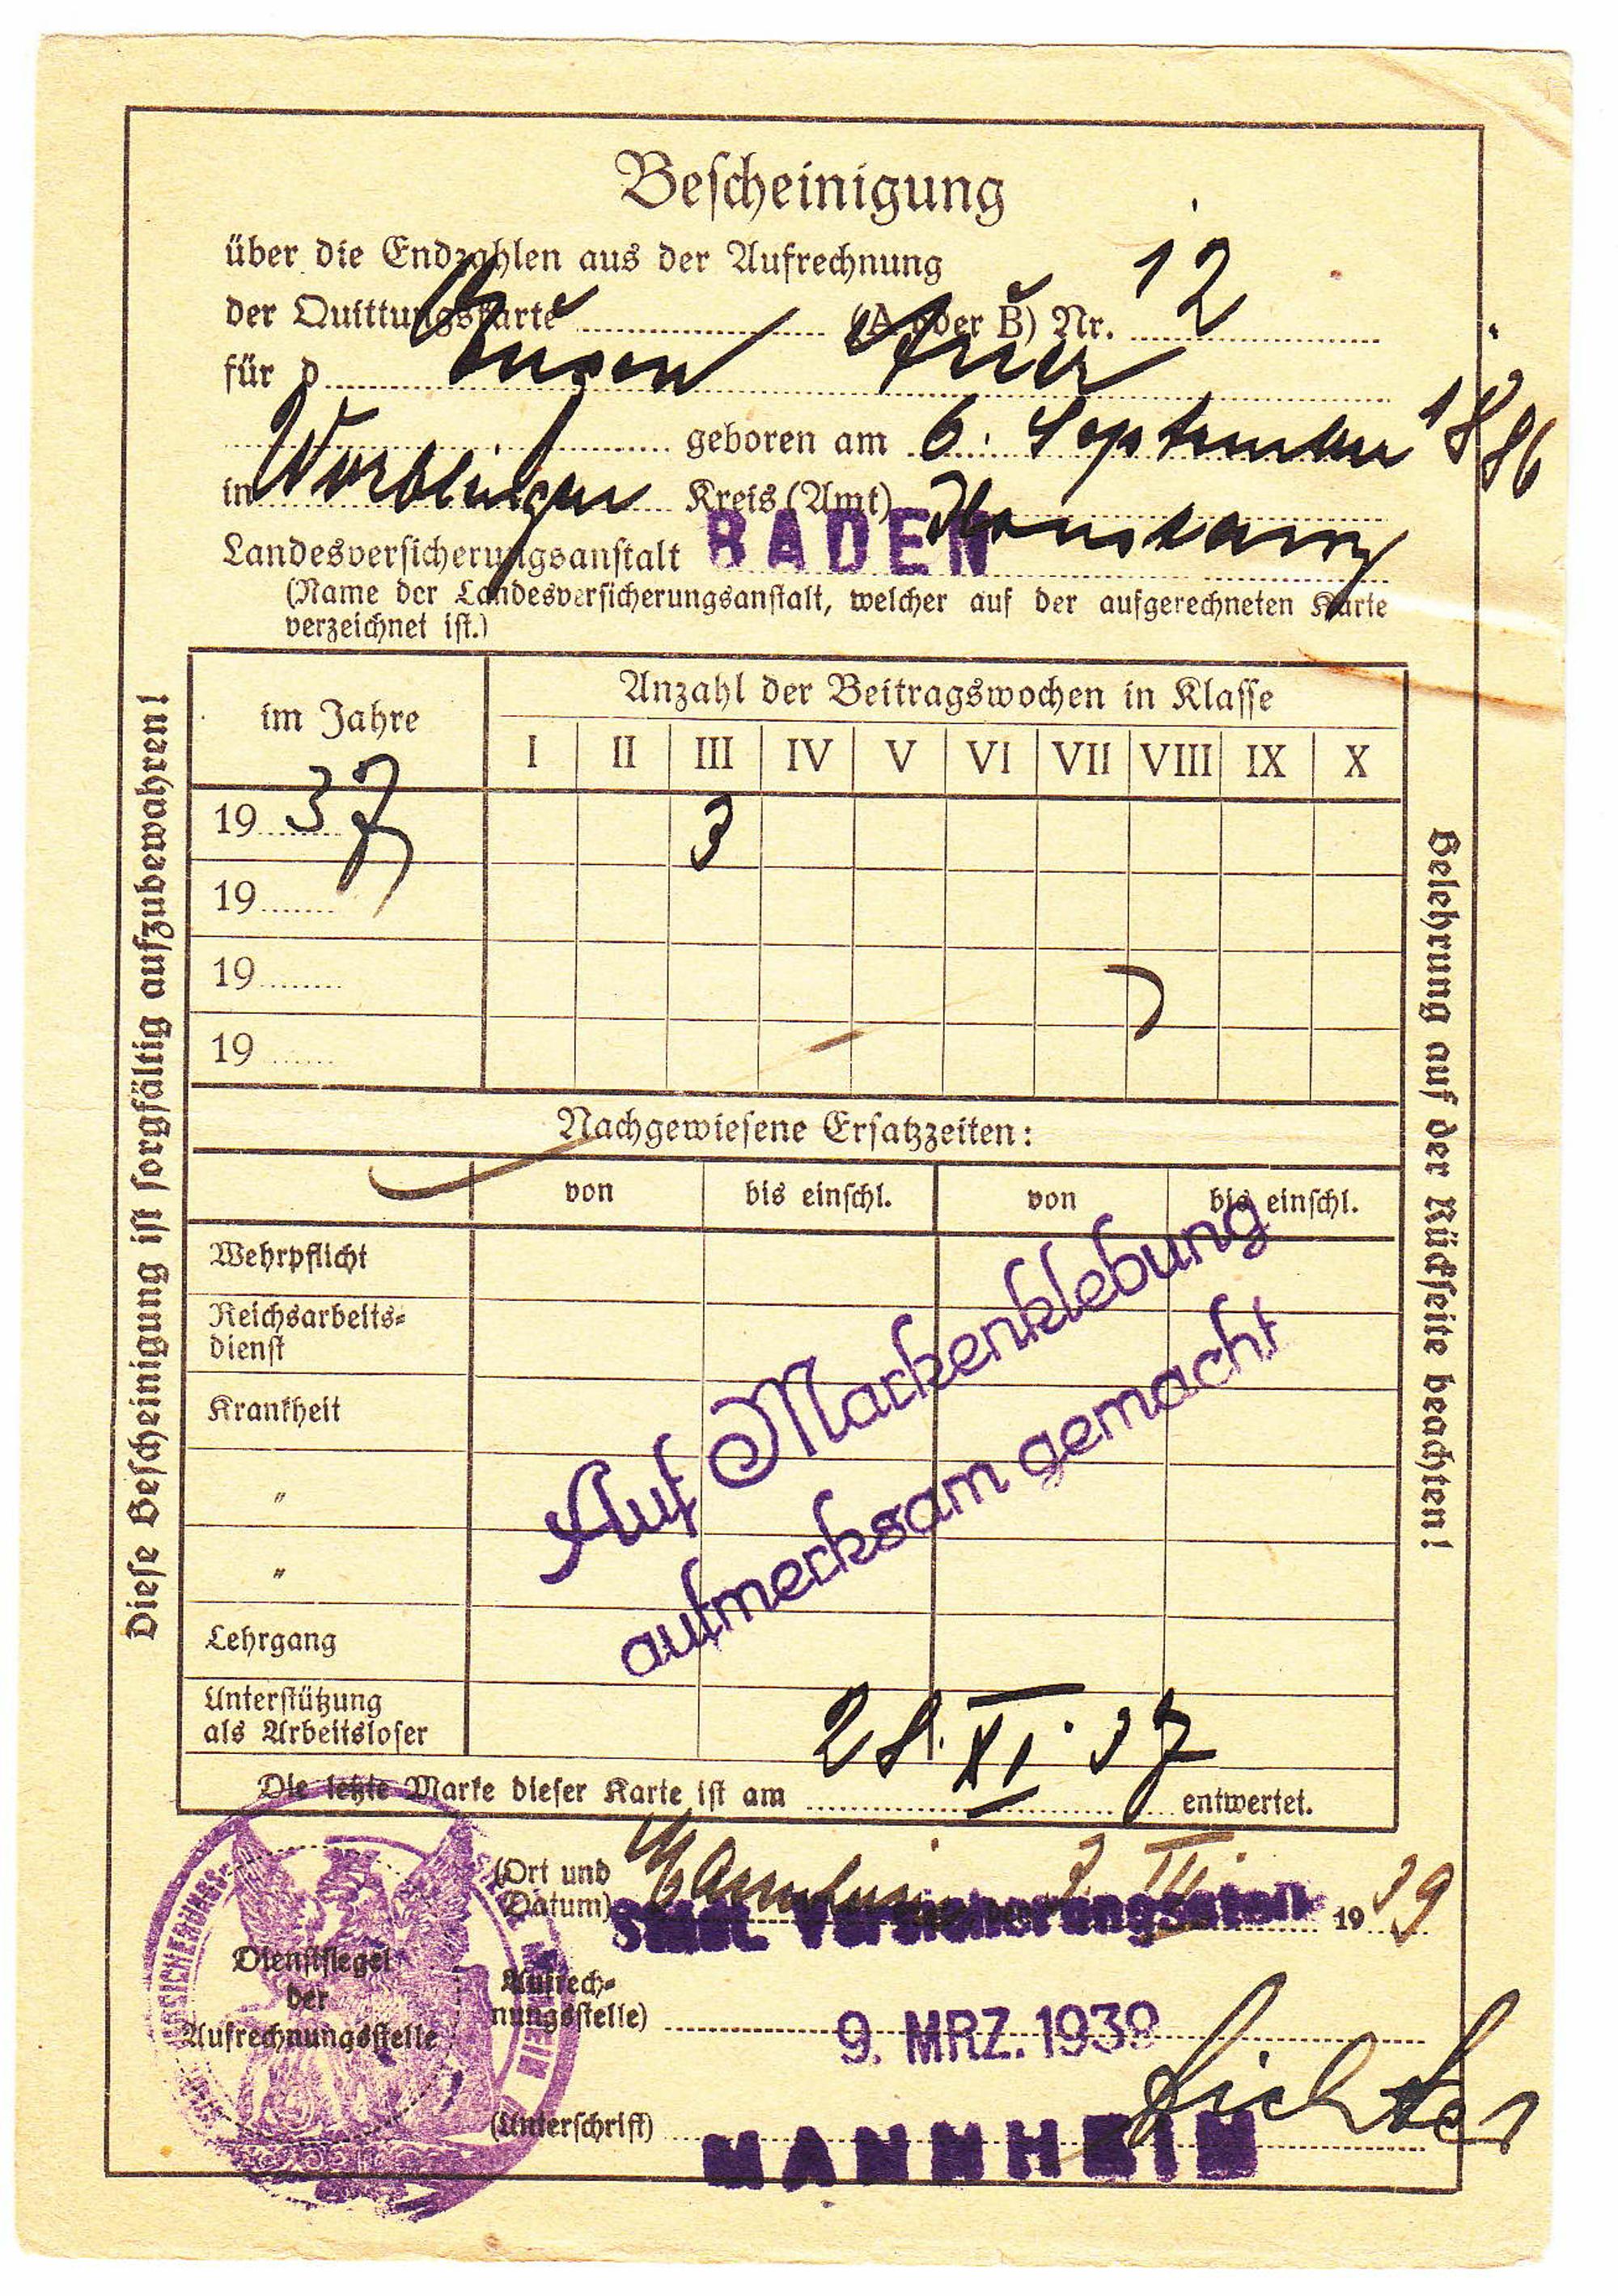 Bescheinigung
über die Endzahlen aus der Aufrechnung
der Quittungskarte (A oder B) Nr. 12
für d
geboren am 6. September 1886
in Worblingen Kreis (Amt) Konstanz
Landesversicherungsanstalt BADEN
(Name der Landesversicherungsanstalt, welcher auf der aufgerechneten Karte
verzeichnet ist.)
im Jahre
Anzahl der Beitragswochen in Klasse
I II III IV V VI VII VIII IX X
19 37 3
19
19
19
Nachgewiesene Ersatzzeiten:
von bis einschl. von bis einschl.
Wehrpflicht
Reichsarbeits-
dienst
Krankheit
"
"
Lehrgang
Unterstützung
als Arbeitsloser
Auf Markenklebung
aufmerksam gemacht
Die letzte Marke dieser Karte ist am 28. XI. 37 entwertet.
(Ort und
Datum) Mannheim III. 1939
Städt. Versicherungsamt
Dienstsiegel
der
Aufrechnungsstelle
Aufrech-
nungsstelle)
9. MRZ. 1939
(Unterschrift)
MANNHEIM
Diese Bescheinigung ist sorgfältig aufzubewahren!
Belehrung auf der Rückseite beachten!